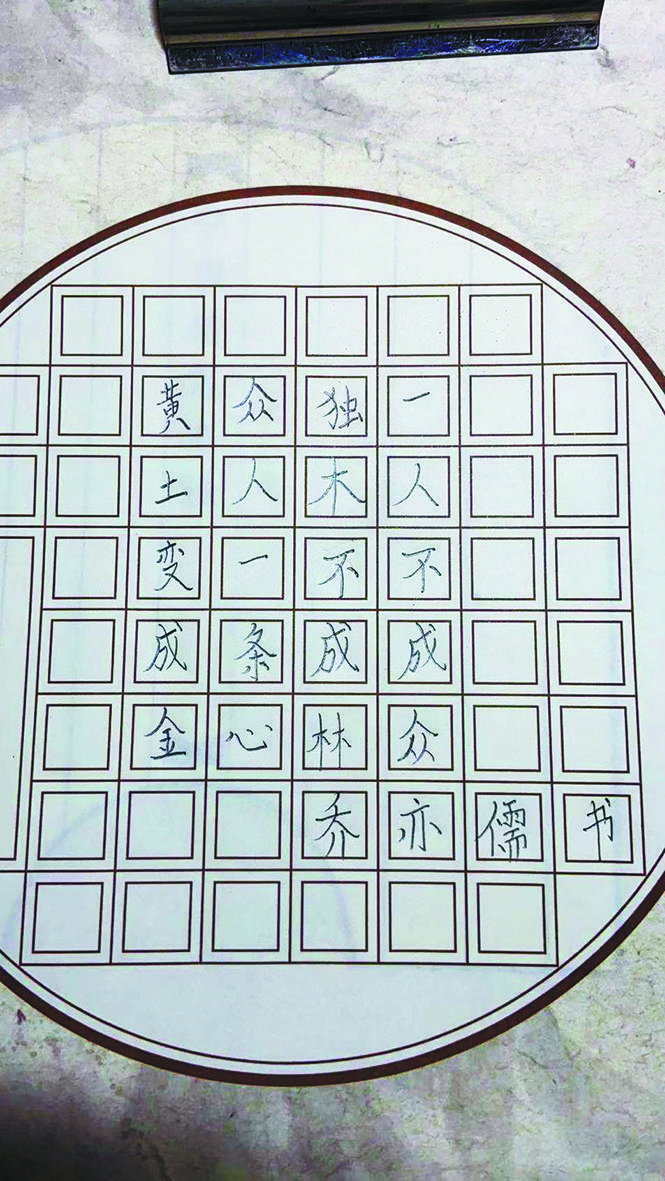 一人不成众
独木不成林
众人一条心
黄土变成金
乔亦儒书